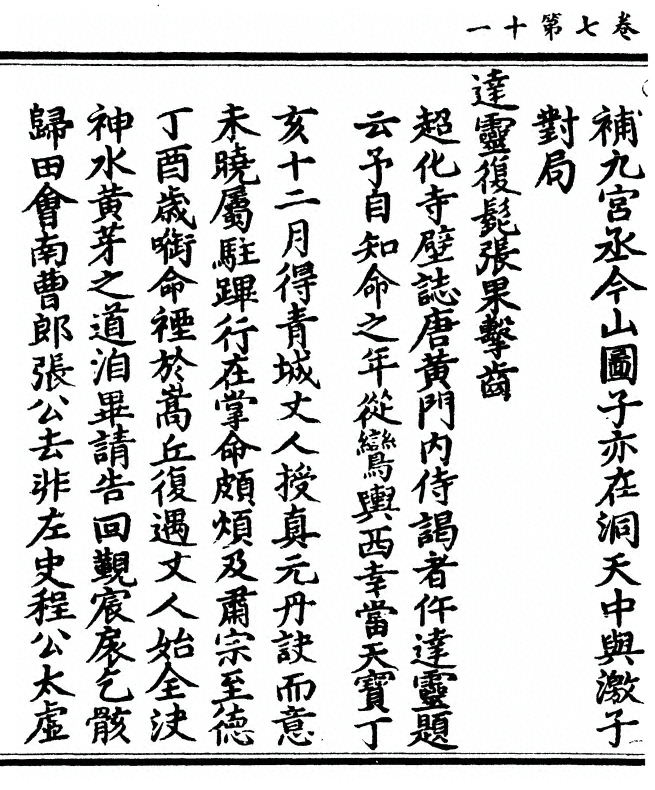 卷七第十一
補九宮丞今山圖子亦在洞天中與激子
對局
達靈復髭張果擊齒
超化寺壁誌唐黃門内侍謁者仵達靈題
云予自知命之年從鸞輿西幸當天寶丁
亥十二月得青城丈人授真元丹訣而意
未曉屬駐蹕行在掌命頗煩及肅宗至德
丁酉歲㘅命禋於嵩丘復遇丈人始全決
神水黃芽之道洎畢請告回覲宸扆乞骸
歸田會南曹郎張公去非左史程公太虛